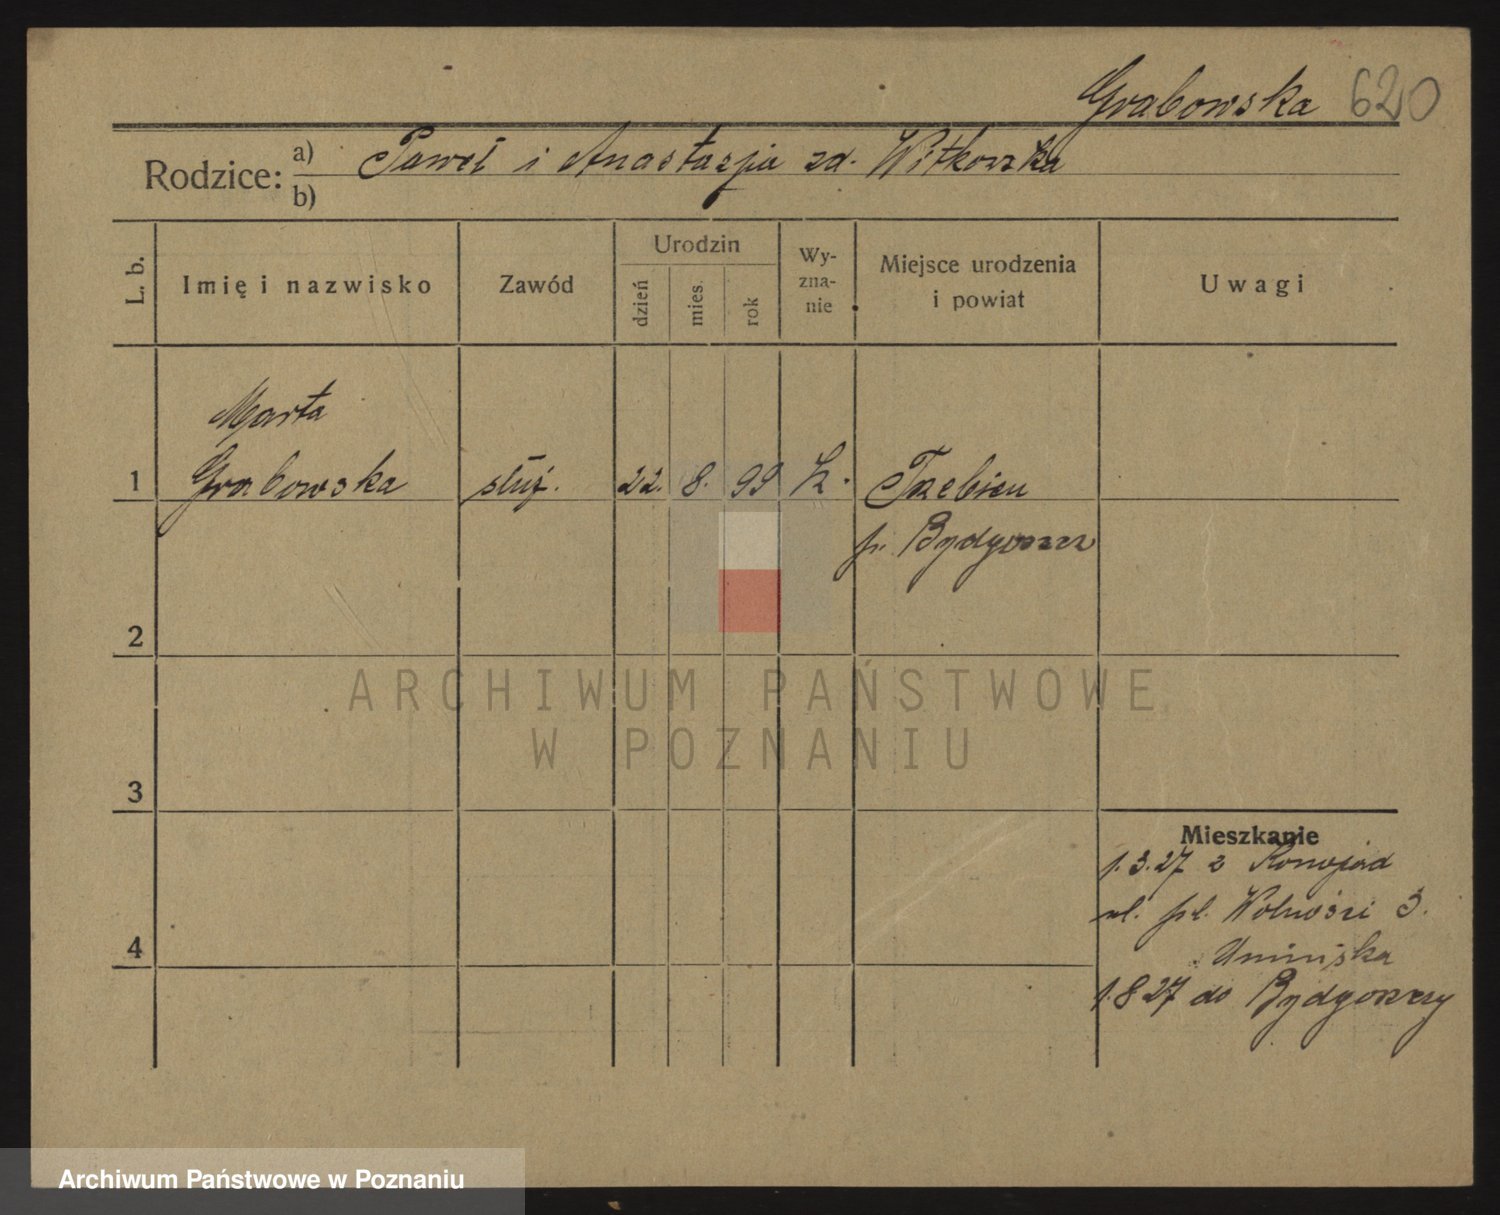 Grabowska 620
Rodzice: a) Paweł i Anastazja zd. Witkowska
b)
L. b.
Imię i nazwisko
Zawód
Urodzin
dzień
mies.
rok
Wy-
zna-
nie
Miejsce urodzenia
i powiat
Uwagi
Marta
1 Grabowska służ. 22. 8. 99 k. Trzebien
p. Bydgoszcz
2
3
4
Mieszkanie
1.3.27 z Konojad
ul. pl. Wolności 3.
Umińska
1.8 27 do Bydgoszczy
ARCHIWUM PAŃSTWOWE
W POZNANIU
Archiwum Państwowe w Poznaniu